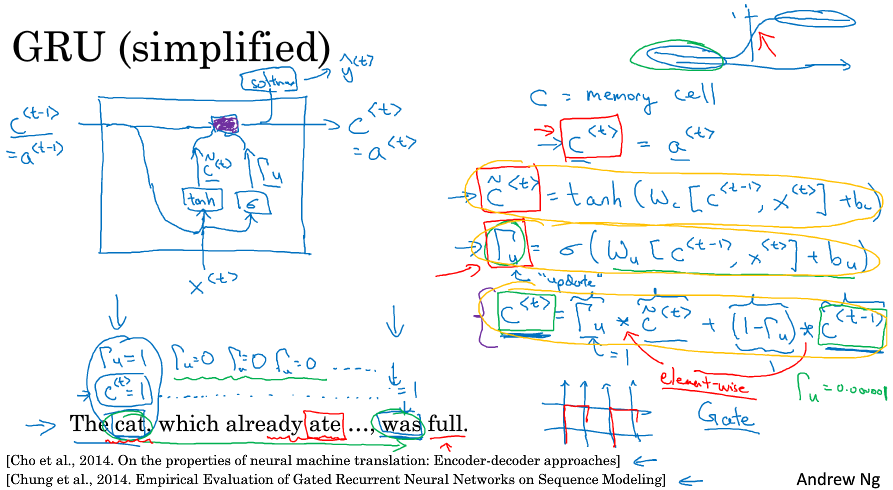 GRU (simplified)
softmax
ŷ<t>
c<t-1>
=a<t-1>
c<t>
=a<t>
c̃<t>
Γu
tanh
σ
x<t>
1
C = memory cell
c<t> = a<t>
c̃<t> = tanh(Wc[c<t-1>, x<t>] + bc)
Γu = σ(Wu[c<t-1>, x<t>] + bu)
"update"
c<t> = Γu * c̃<t> + (1-Γu) * c<t-1>
=1
element-wise
Γu = 0.000001
Gate
Γu=1 Γu=0 Γu=0 Γu=0 .....
c<t>=1 ..... =1
The cat, which already ate …, was full.
[Cho et al., 2014. On the properties of neural machine translation: Encoder-decoder approaches]
[Chung et al., 2014. Empirical Evaluation of Gated Recurrent Neural Networks on Sequence Modeling]
Andrew Ng